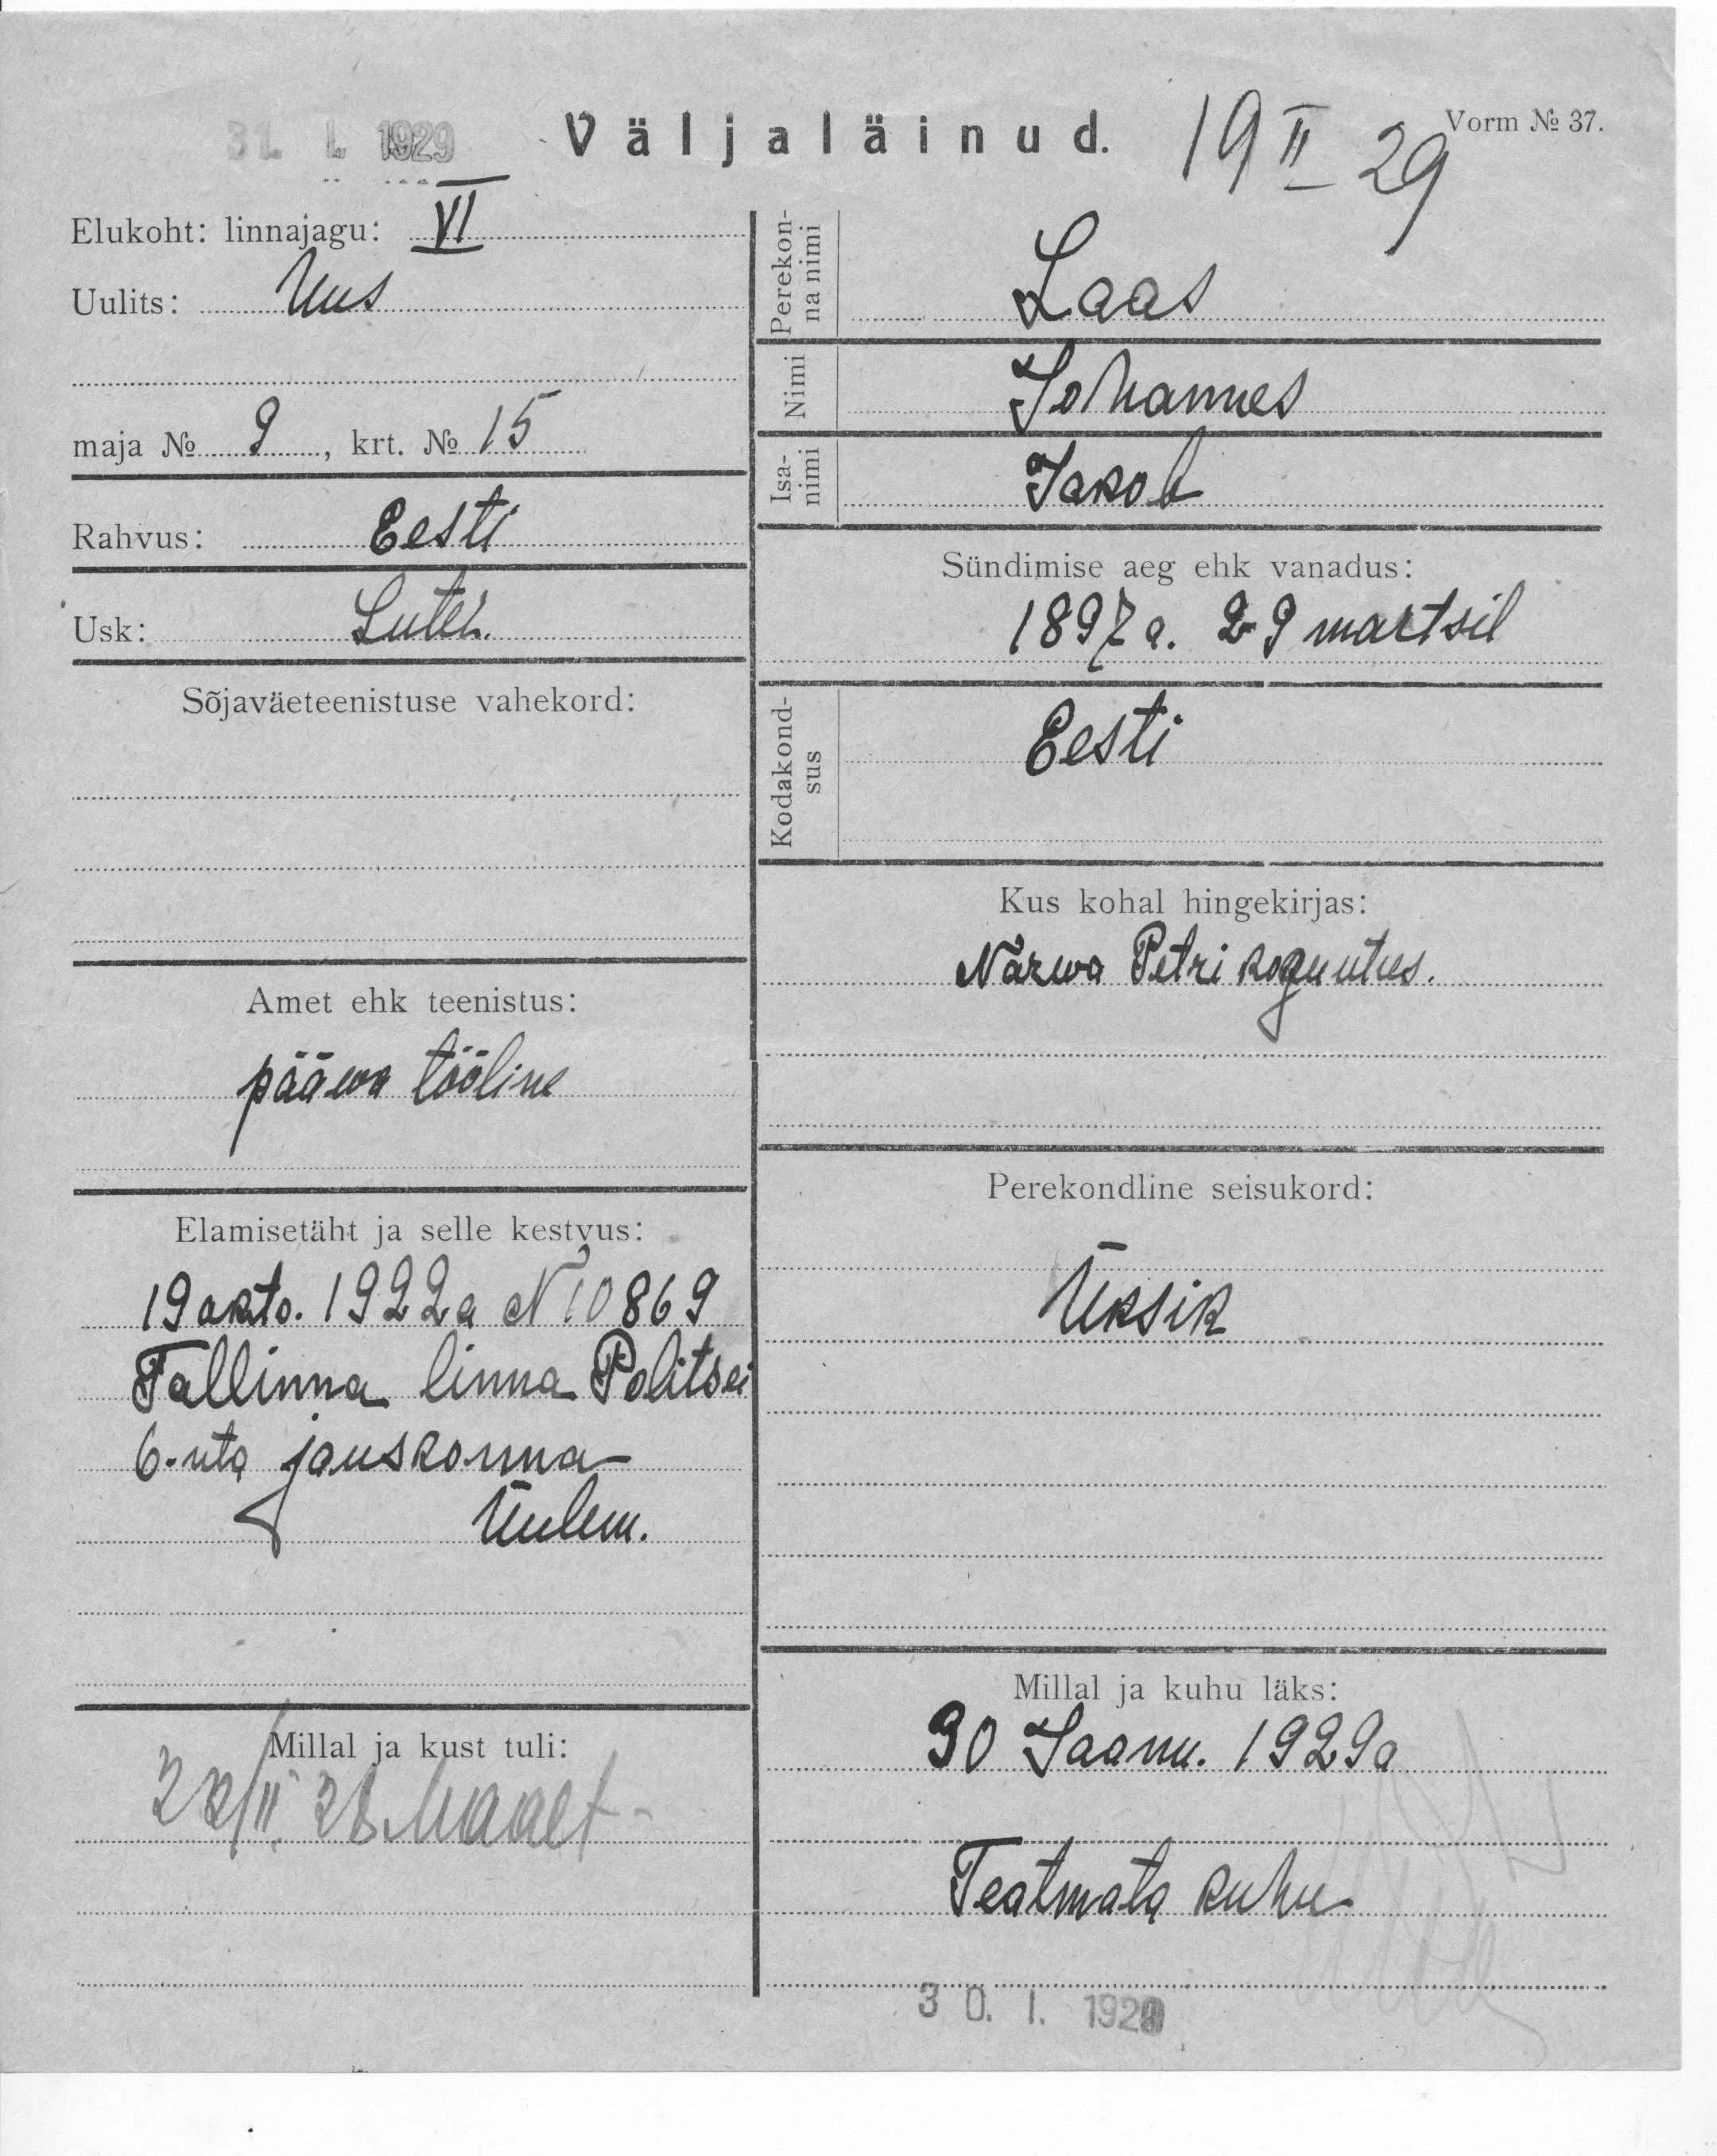 31. I. 1929
Väljaläinud.
19 II 29
Vorm № 37.
Elukoht: linnajagu: VI
Uulits: Uus
maja № 9, krt. № 15
Rahvus: Eesti
Usk: Luteh.
Sõjaväeteenistuse vahekord:
Amet ehk teenistus:
pääwa tööline
Elamisetäht ja selle kestvus:
19 okto. 1922a N 10869
Tallinna linna Politsei
6-nta jauskonna
Üulem.
Millal ja kust tuli:
22/II 28 Maalt
Perekon-
na nimi
Laas
Nimi
Johannes
Isa-
nimi
Jakob
Sündimise aeg ehk vanadus:
1897 a. 29 martsil
Kodakond-
sus
Eesti
Kus kohal hingekirjas:
Narwa Petri koguutues.
Perekondline seisukord:
Üksik
Millal ja kuhu läks:
30 Jaanu. 1929a
Teatmata kuhu
30. I. 1929